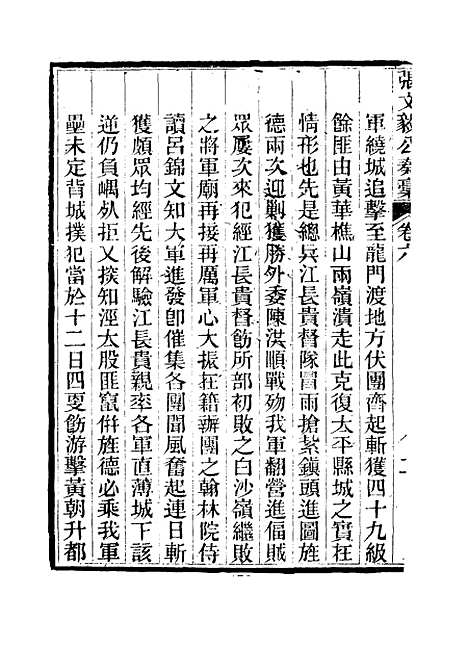 張文毅公奏稾 卷六
軍繞城追擊至龍門渡地方伏團齊起斬獲四十九級
餘匪由黃華樵山兩嶺潰走此克復太平縣城之實在
情形也先是總兵江長貴督隊冒雨搶紮鎭頭進圖旌
德兩次迎剿獲勝外委陳洪順戰歿我軍翻營進偪賊
眾屢次來犯經江長貴督飭所部初敗之白沙嶺繼敗
之將軍廟再接再厲軍心大振在籍辦團之翰林院侍
讀呂錦文知大軍進發卽催集各團聞風奮起連日斬
獲頗眾均經先後解驗江長貴親率各軍直薄城下該
逆仍負嵎死拒又探知涇太股匪竄倂旌德必乘我軍
壘未定背城撲犯當於十二日四更飭游擊黃朝升都